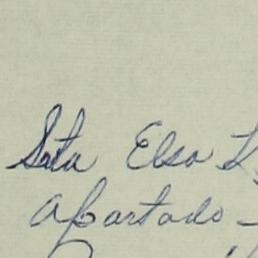 Srta Elsa
Apartado -